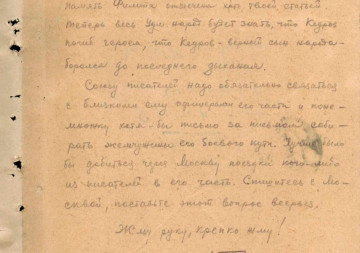 память Филиппа описана от твоей статьи
Теперь весь Удм. народ будет знать, что Кедров
погиб героем, что Кедров - верный сын народа -
боролся до последнего дыхания.
Союзу писателей надо обязательно связаться
с близкими ему офицерами его части и поне-
многу хотя-бы письмо за письмом соби-
рать жемчужины его боевого пути. Лучше было
бы добиться через Москву поездки кого-либо
из писателей в его часть. Спишитесь с Мо-
сквой, поставьте этот вопрос всерьез.
Жму руку, крепко жму!